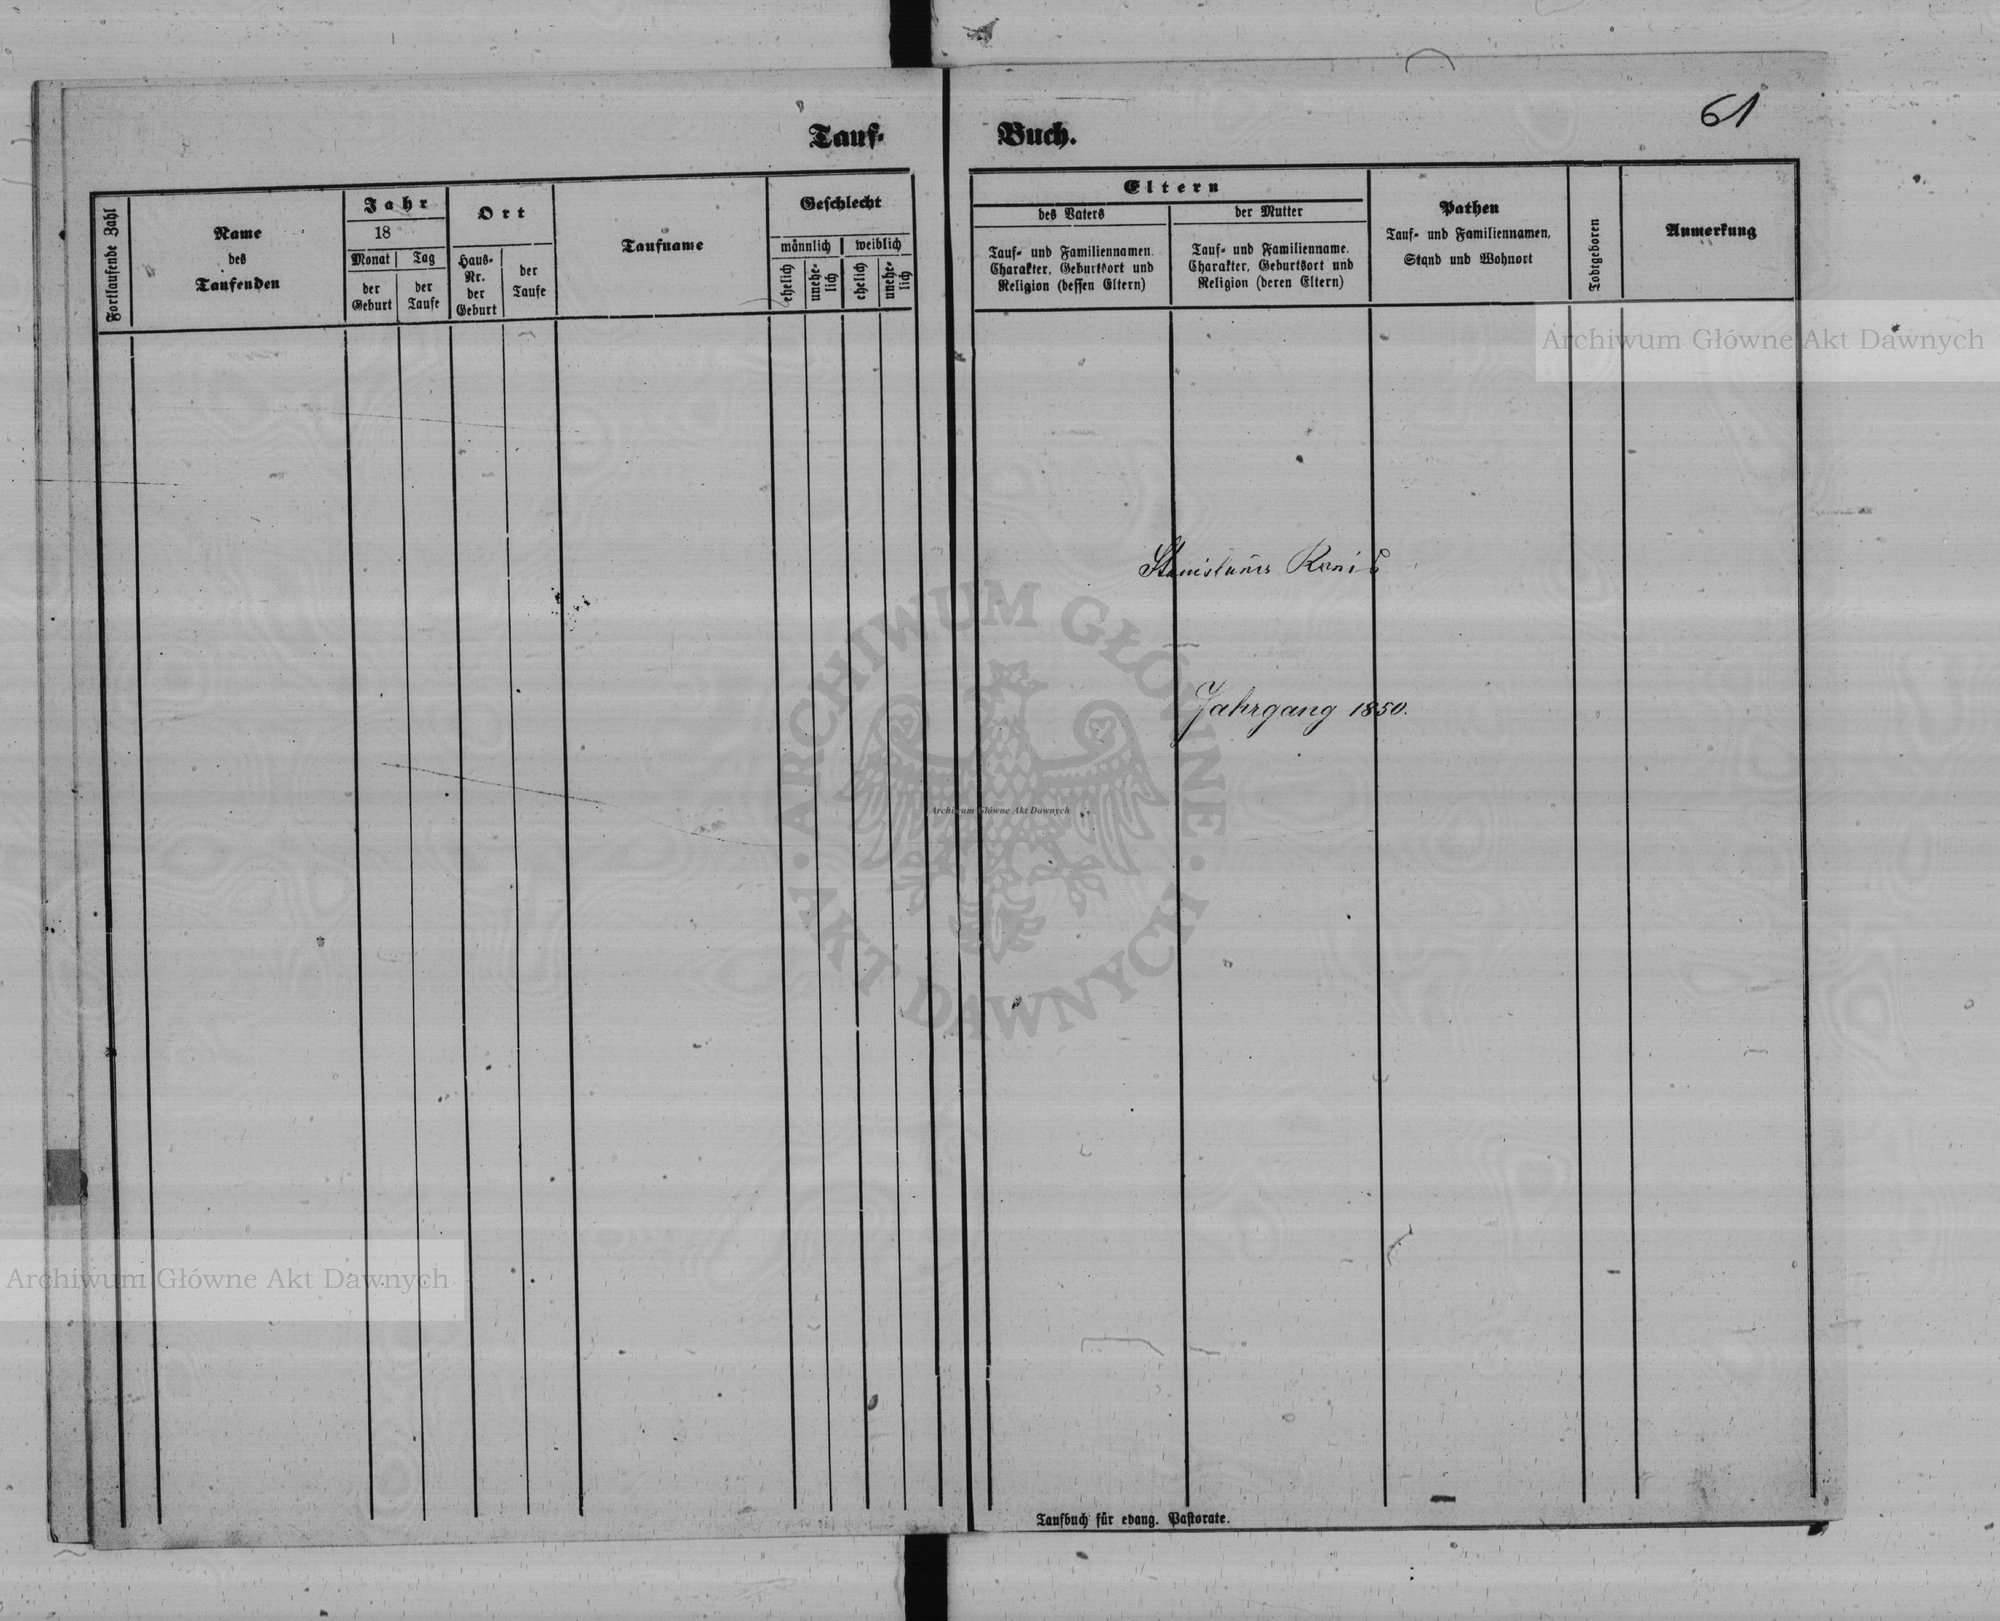 61
Tauf-
Buch.
Fortlaufende Zahl
Name
des
Taufenden
Jahr
18
Monat
Tag
der
Geburt
der
Taufe
Ort
Haus-
Nr.
der
Geburt
der
Taufe
Taufname
Geschlecht
männlich
weiblich
ehelich
unehe-
lich
ehelich
unehe-
lich
Eltern
des Vaters
der Mutter
Tauf- und Familiennamen.
Charakter, Geburtsort und
Religion (dessen Eltern)
Tauf- und Familienname.
Charakter, Geburtsort und
Religion (deren Eltern)
Pathen
Tauf- und Familiennamen,
Stand und Wohnort
Todtgeboren
Anmerkung
Archiwum Główne Akt Dawnych
Jahrgang 1850.
ARCHIWUM GŁÓWNE
AKT DAWNYCH
Archiwum Główne Akt Dawnych
Archiwum Główne Akt Dawnych
Taufbuch für evang. Pastorate.